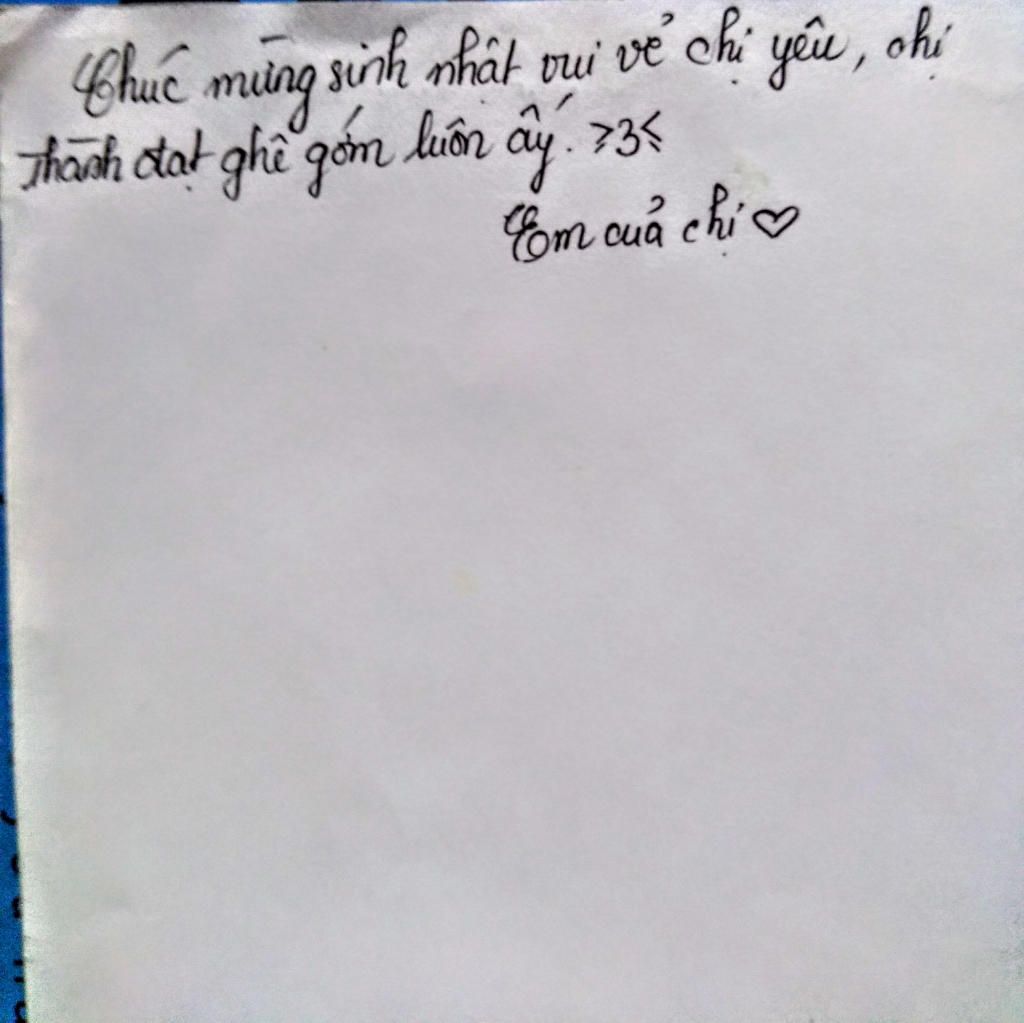 Chúc mừng sinh nhật vui vẻ chị yêu, chị
thành đạt ghê gớm luôn ấy. ≥3≤
Em của chị ♡